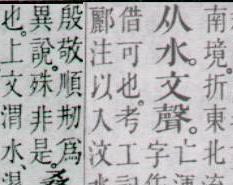 南境。折東北
从水。文聲。
亡
字
借可也。考工
酈注以入汶
殷敬順刱為
異說。殊非是。桑
也。上文渭水